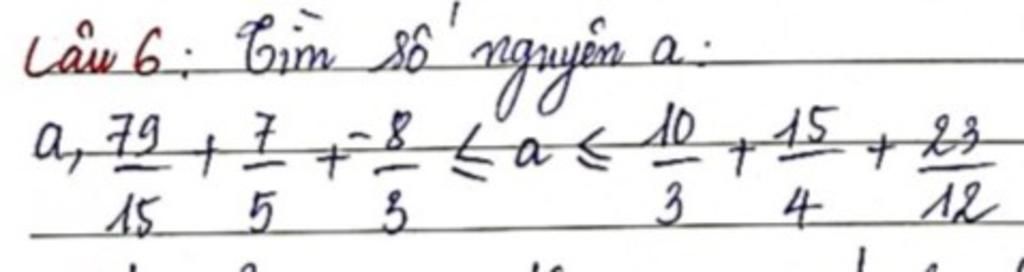 Câu 6: Tìm số nguyên a:
a, 79/15 + 7/5 + -8/3 ≤ a ≤ 10/3 + 15/4 + 23/12